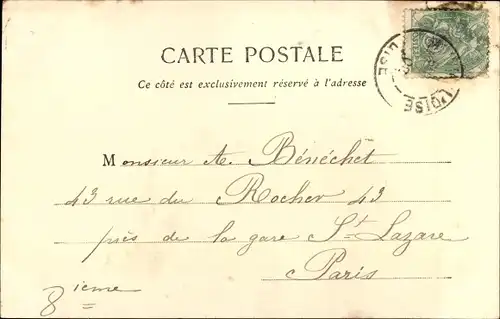 CARTE POSTALE
Ce côté est exclusivement réservé à l'adresse
Monsieur A. Bénéchet
43 rue du Rocher 43
près de la gare St Lazare
Paris
8ieme
OISE
L'OISE